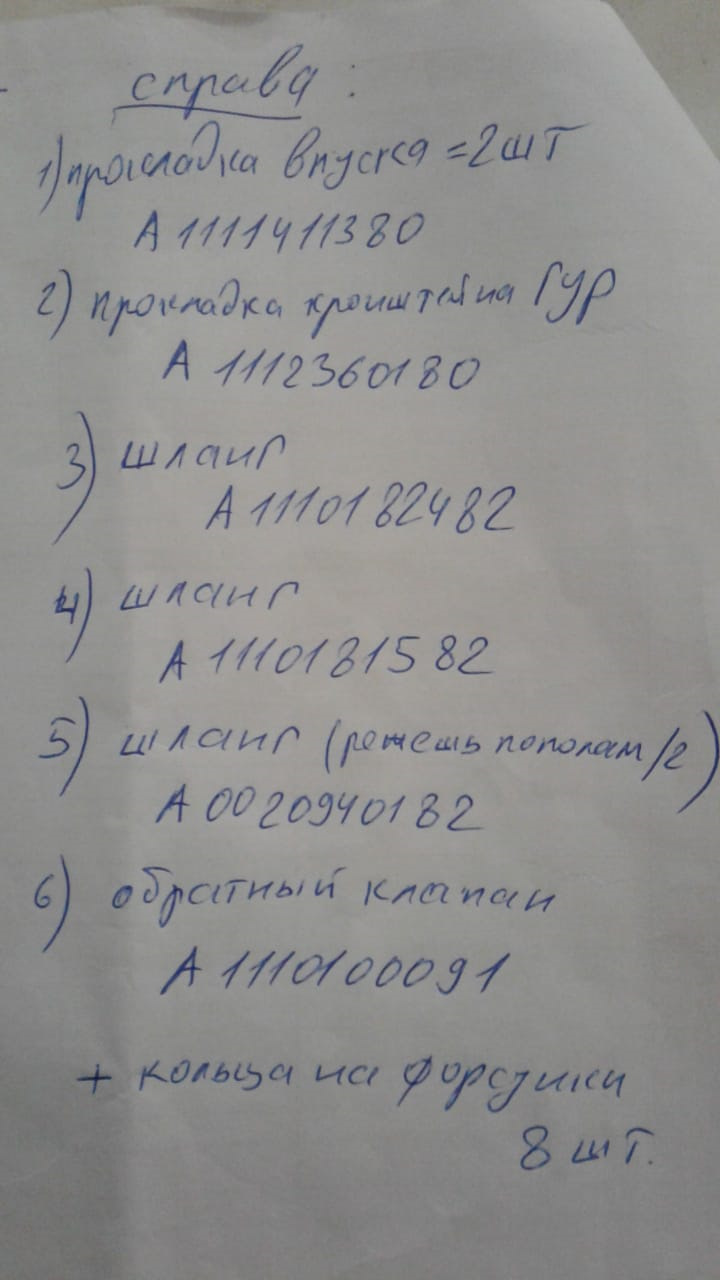 справа:
1) прокладка впуска = 2 шт
А 1111411380
2) прокладка кронштейна ГУР
А 1112360180
3) шланг
А 1110182482
4) шланг
А 1110181582
5) шланг (режешь пополам /2)
А 0020940182
6) обратный клапан
А 1110100091
+ кольца на форсунки
8 шт.